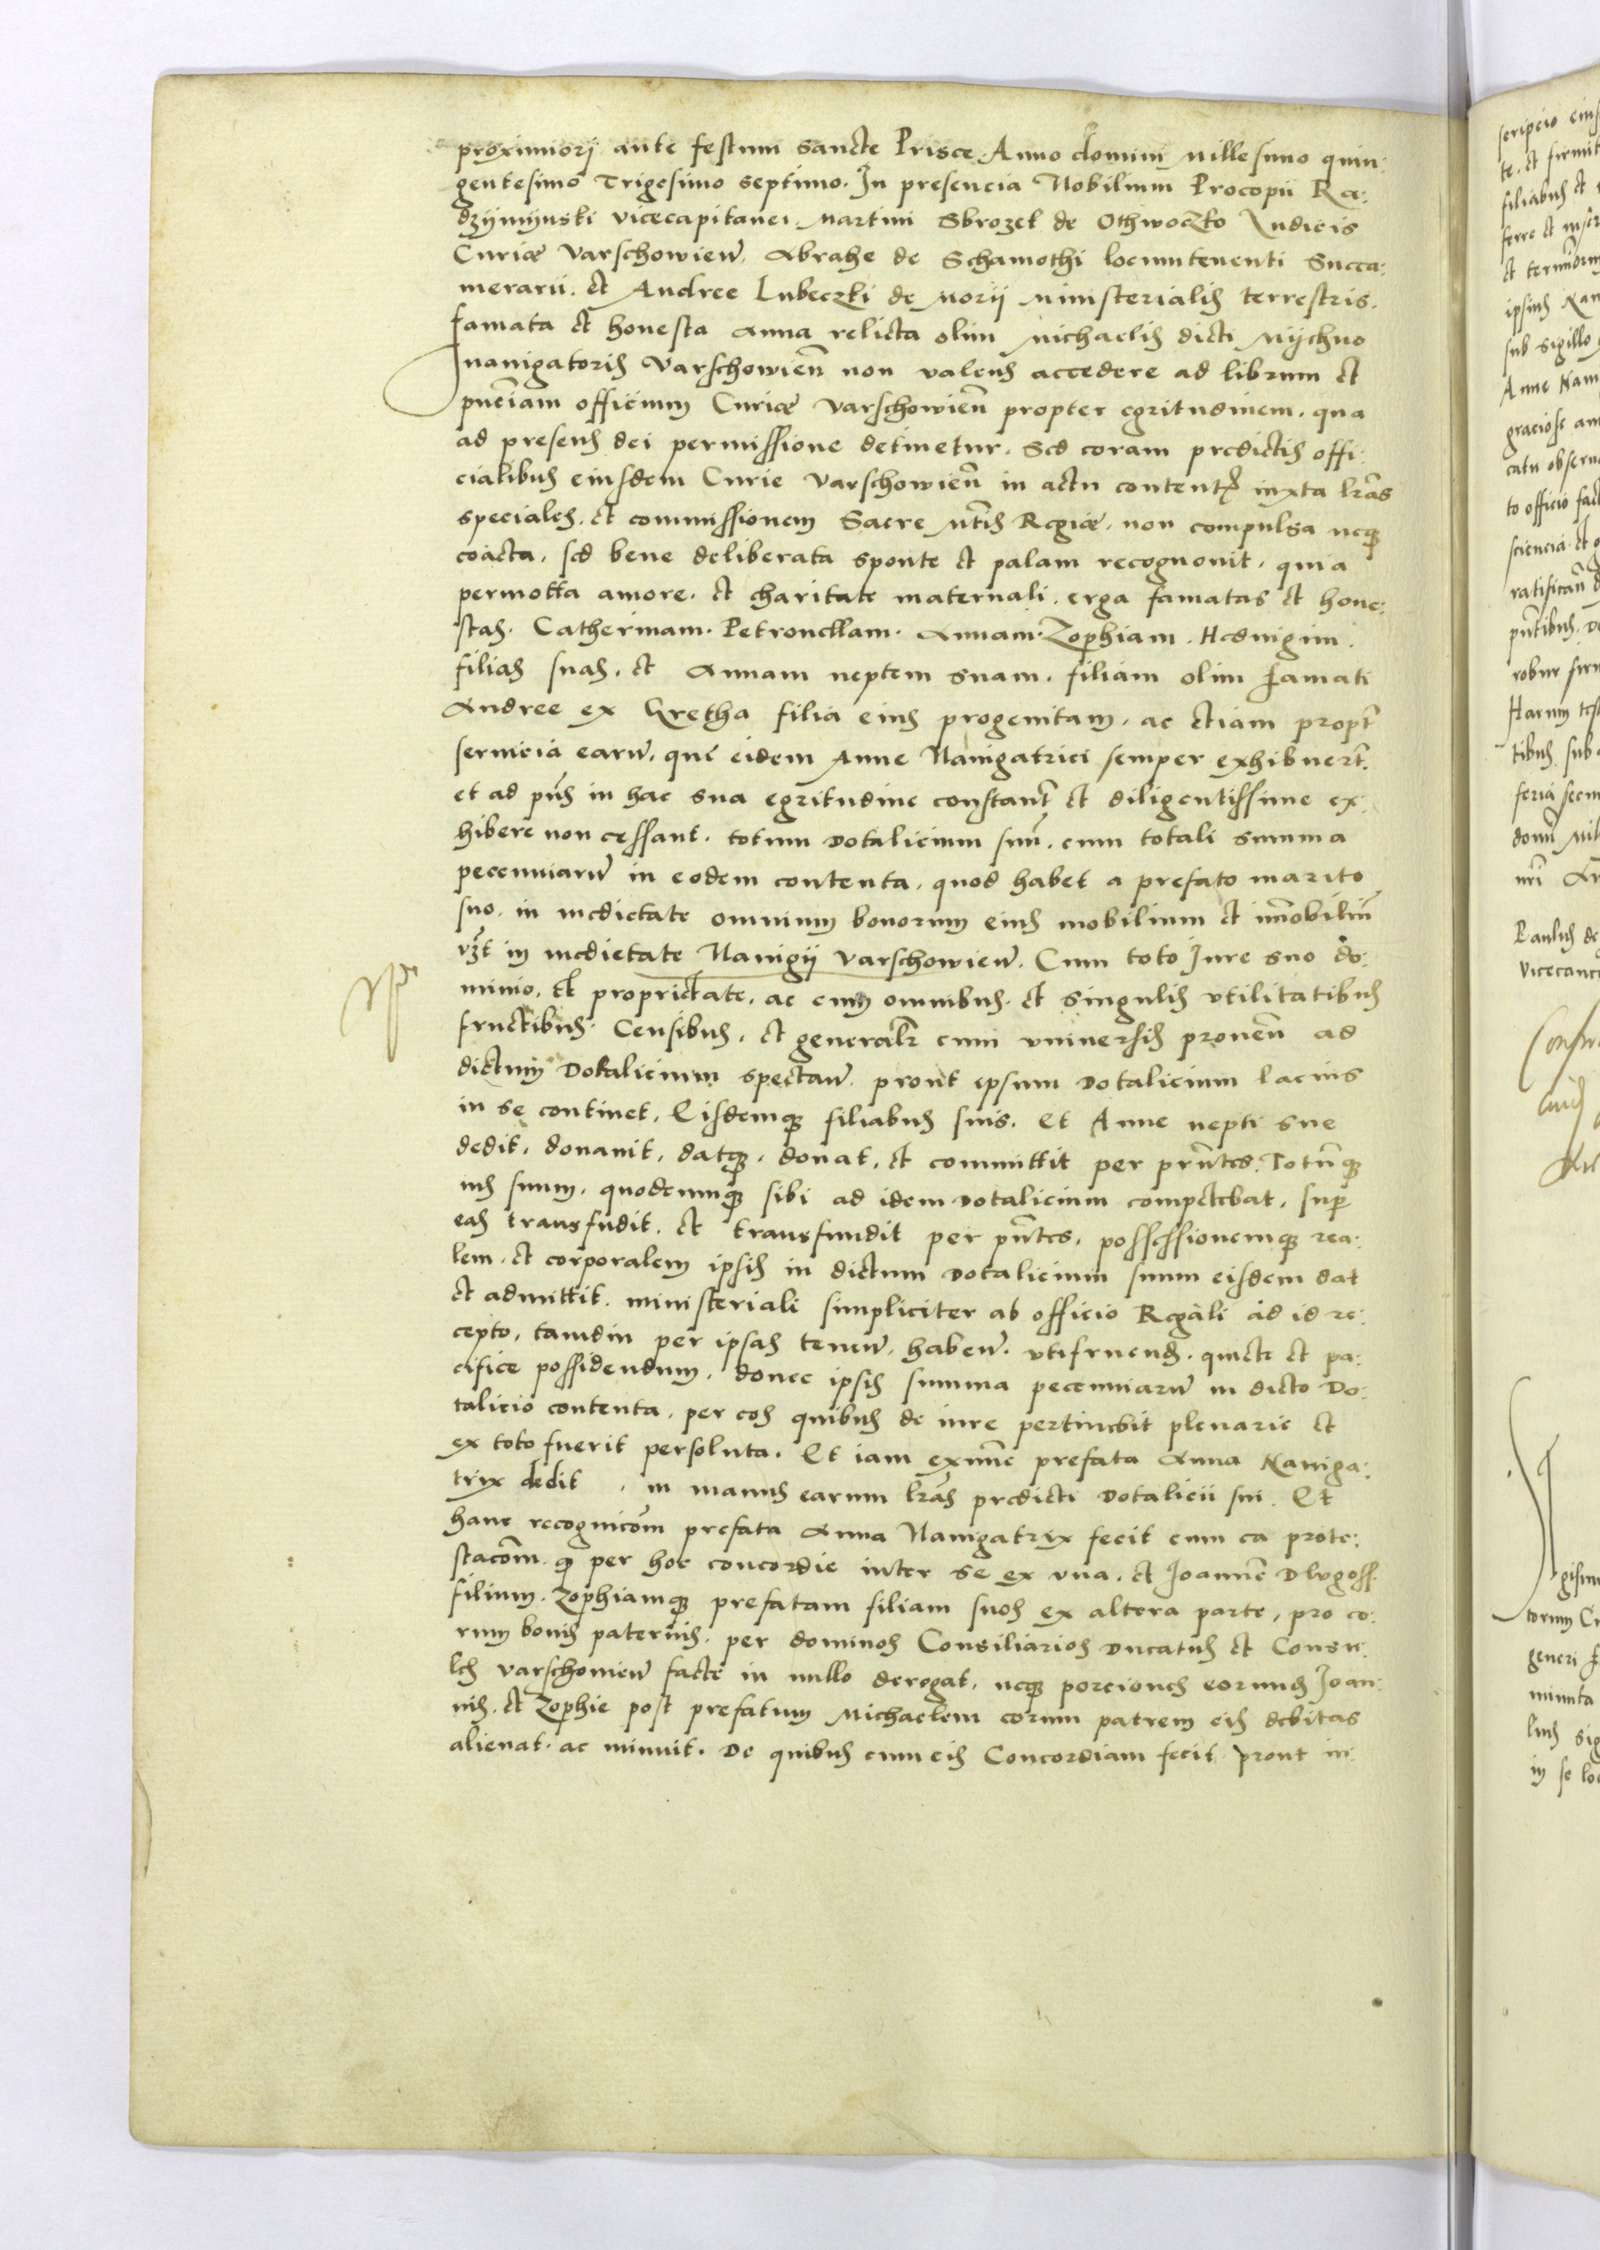 proximiori ante festum Sancte Prisce Anno domini Millesimo quin:
gentesimo Trigesimo septimo. In presencia Nobilium Procopii Rce:
dzijmijnski vicecapitanei Martini Sbrozek de Othwoczko Iudicis
Curiæ Varschowien̄. Abrahe de Schamothi locumtenenti Succa:
merarii. et Andree Lubeczki de Morii Ministerialis terrestris.
famata et honesta Anna relicta olim Michaelis dicti Mijchno
nauigatoris Varschowien̄ non valens accedere ad librum et
pn̄ciam officium Curiæ Varschowien̄ propter egritudinem. qua
ad presens dei permissione detinetur. Sed coram predictis offi:
cialibus eiusdem Curie Varschowien̄ in actu content iuxta lr̄as
speciales. et commissionem Sacre Mt̄is Regiæ. non compulsa neqꝫ
coacta. sed bene deliberata sponte et palam recognouit. quia
permotta amore. et charitate maternali. erga famatas et hone:
stas. Catherinam. Petronellam. Annam. Zophiam. Heduigim
filias suas. et Annam neptem suam. filiam olim famati
Andree ex Gretha filia eius progenitam. ac etiam propt̄
seruicia earum̄. que eidem Anne Nauigatrici semper exhibuert̄.
et ad pn̄s in hac sua egritudine constant̄ et diligentissime ex:
hibere non cessant. totum Dotalicium suū. cum totali summa
pecenniarum̄ in eodem contenta. quod habet a prefato marito
suo. in medietate omnium bonorum eius mobilium et im̄obiliū
vꝫt in medietate Nauigii Varschowien̄. Cum toto Iure suo do:
minio. et proprietate. ac cum omnibus. et singulis vtilitatibus
fructibus. Censibus. et generalr̄ cum vniuersis prouen̄ ad
dictum Dotalicium spectan̄. prout ipsum Dotalicium lacius
in se continet. Eisdemqꝫ filiabus suis. Et Anne nepti sue
dedit. donauit. datqꝫ. donat. et committit per prn̄tes. Totūqꝫ
ius suum. quodcumqꝫ sibi ad idem Dotalicium competebat. sup̄
eas transfudit. et transfundit per pn̄tes. possessionemqꝫ rea:
lem. et corporalem ipsis in dictum Dotalicium suum eisdem dat
et admittit. ministeriali simpliciter ab officio Regali ad id re:
cepto. tamdiu per ipsas tenen̄. haben̄. vtifruend. quiete et pa:
cifice possidendum. donec ipsis summa pecenniarum̄ in dicto Do:
talicio contenta. per eos quibus de iure pertinebit plenarie et
ex toto fuerit persoluta. Et iam exnūc prefata Anna Nauiga:
trix dedit. in manus earum lr̄as predicti Dotalicii sui. Et
hanc recognicōm prefata Anna Nauigatrix fecit cum ea prote:
stacōm. qꝫ per hoc concordie inter se ex vna. et Ioannē Dlugoss
filium. Zophiamqꝫ prefatam filiam suos ex altera parte. pro eo:
rum bonis paternis. per dominos Consiliarios Ducatus et Consu:
les Varschouien̄ facte in nullo derogat. neqꝫ porciones eorund Ioan:
nis. et Zophie post prefatum Michaelem eorum patrem eis debitas
alienat. ac minuit. De quibus cum eis Concordiam fecit prout in